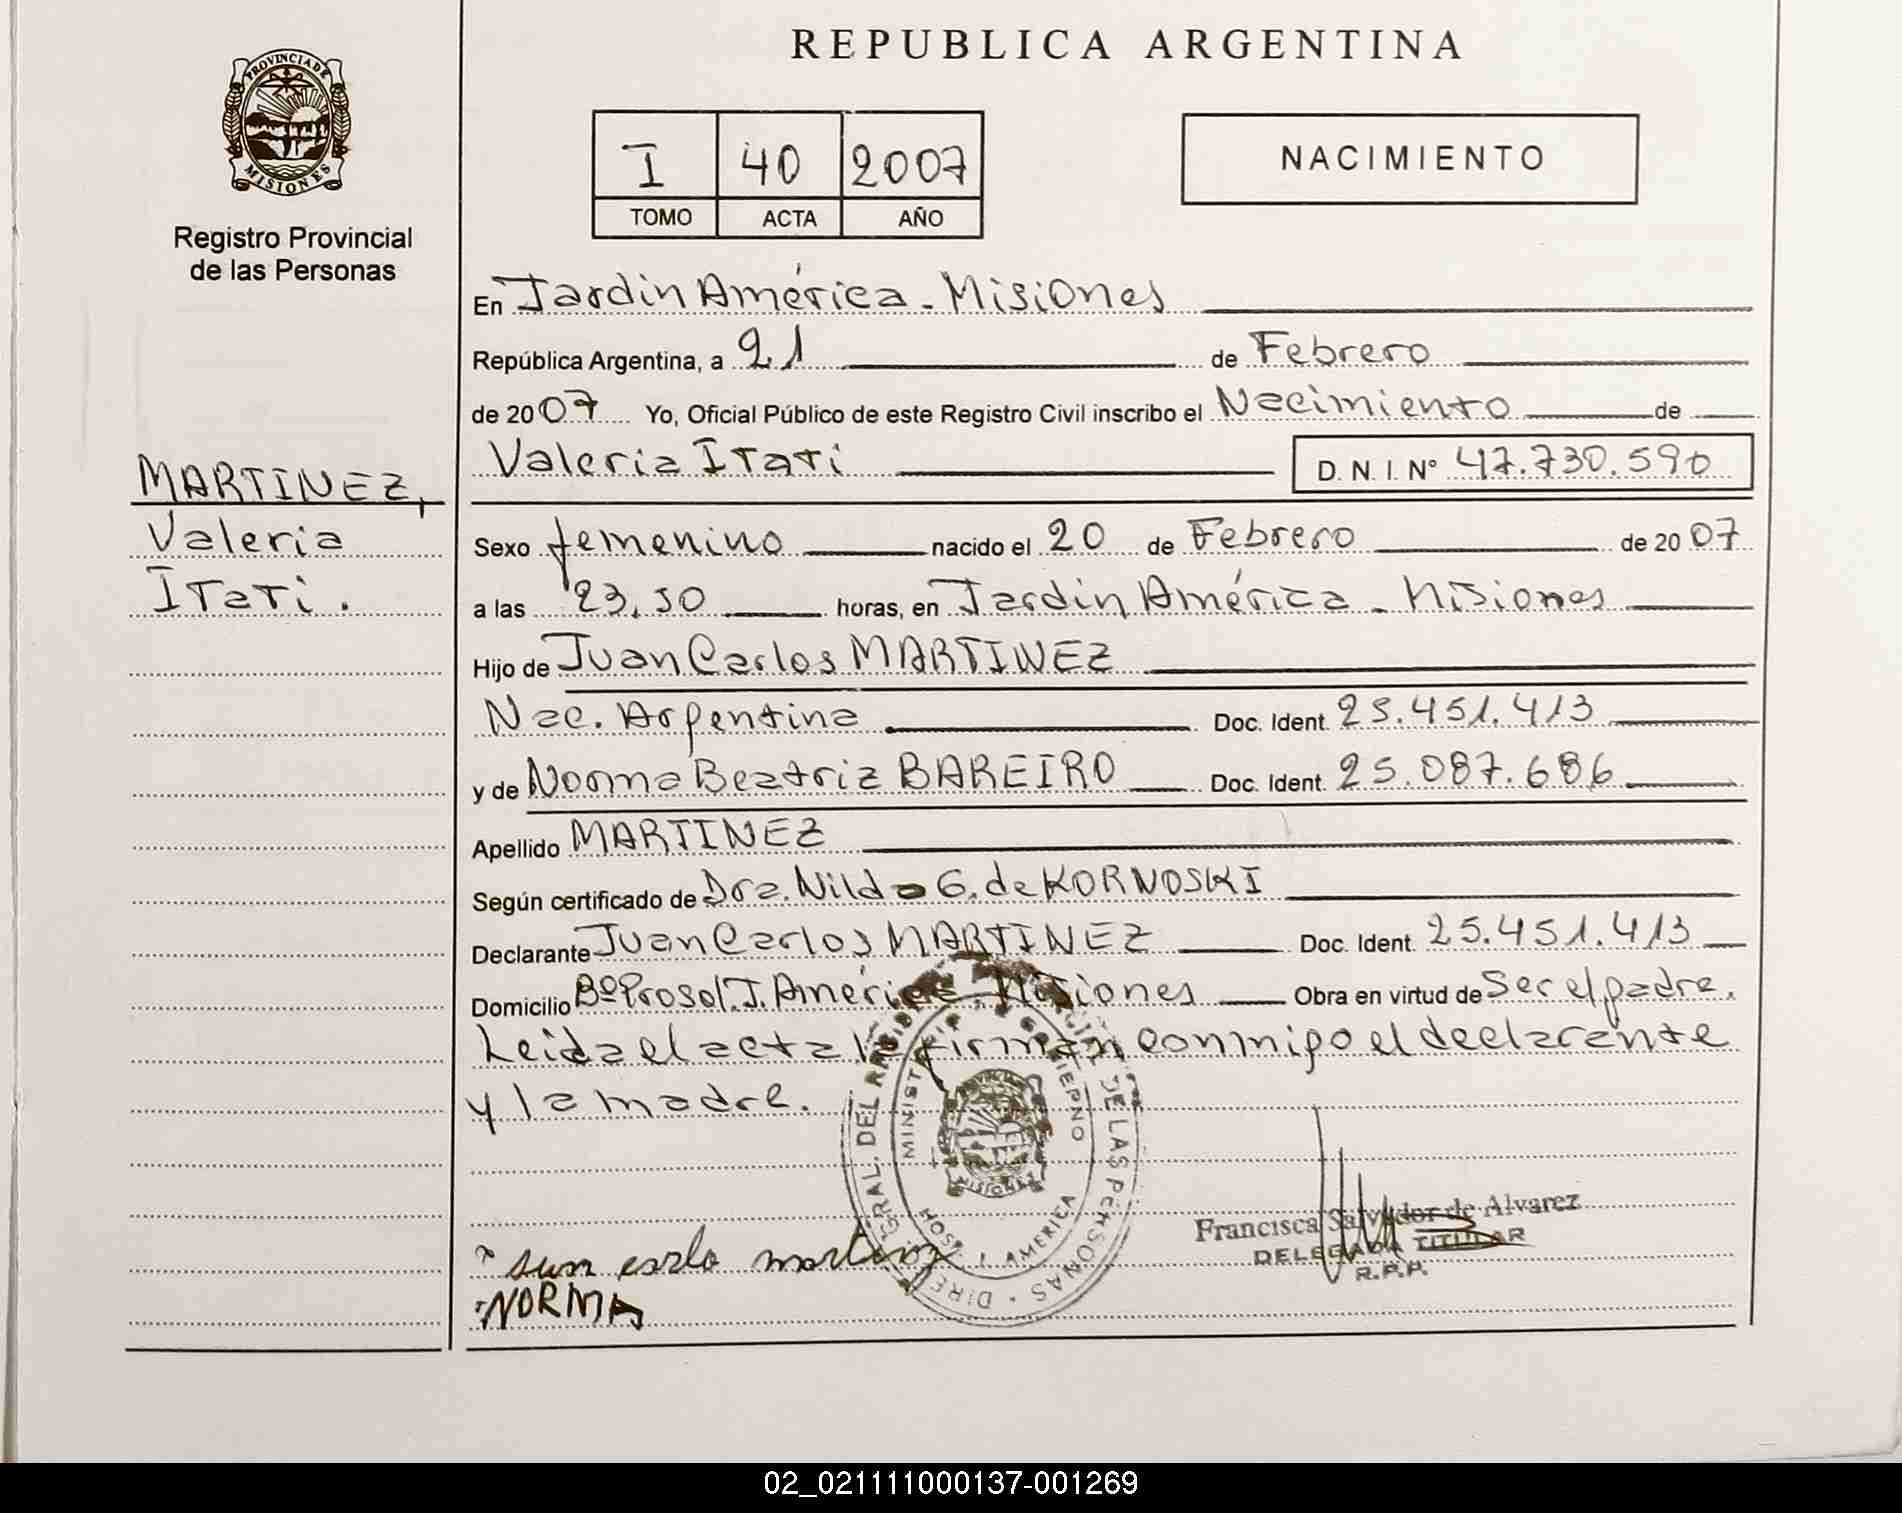 REPUBLICA ARGENTINA
PROVINCIA DE MISIONES
Registro Provincial
de las Personas
I 40 2007
TOMO ACTA AÑO
NACIMIENTO
En Jardín América - Misiones
República Argentina, a 21 de Febrero
de 2007 Yo, Oficial Público de este Registro Civil inscribo el Nacimiento de
Valeria Itati D. N. I. N° 47.730.590
MARTINEZ,
Valeria
Itati.
Sexo femenino nacido el 20 de Febrero de 2007
a las 23,50 horas, en Jardín América - Misiones
Hijo de Juan Carlos MARTINEZ
Nac. Argentina Doc. Ident. 25.451.413
y de Norma Beatriz BAREIRO Doc. Ident. 25.087.686
Apellido MARTINEZ
Según certificado de Dra. Nilda G. de KORNOSKI
Declarante Juan Carlos MARTINEZ Doc. Ident. 25.451.413
Domicilio Bº Prosol. J. América - Misiones Obra en virtud de Ser el padre.
Leida el acta la firman conmigo el declarante
y la madre.
MINISTERIO DE GOBIERNO
DE LAS PERSONAS
MISIONES
HOSP. J. AMERICA
Francisca Salvador de Alvarez
DELEGADA TITULAR
R.P.P.
NORMA
02_021111000137-001269